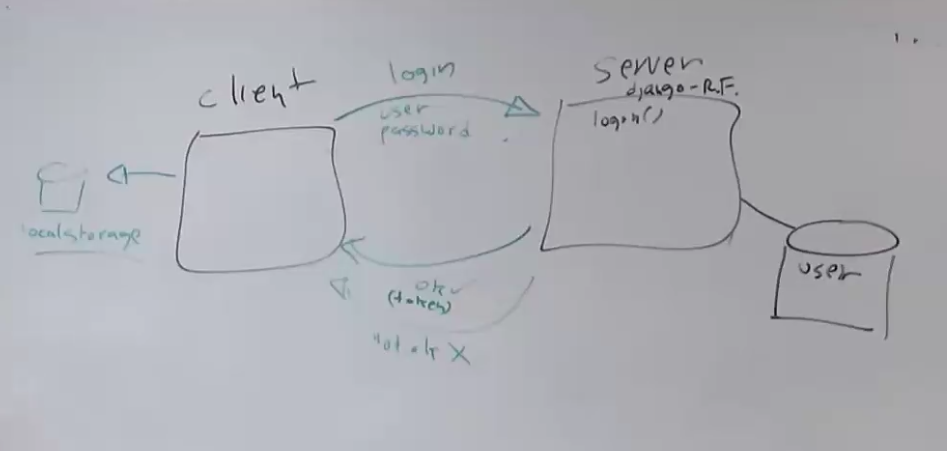 client
login
user
password
server
django-R.F.
login()
localstorage
user
ok ✓
(token)
not ok X